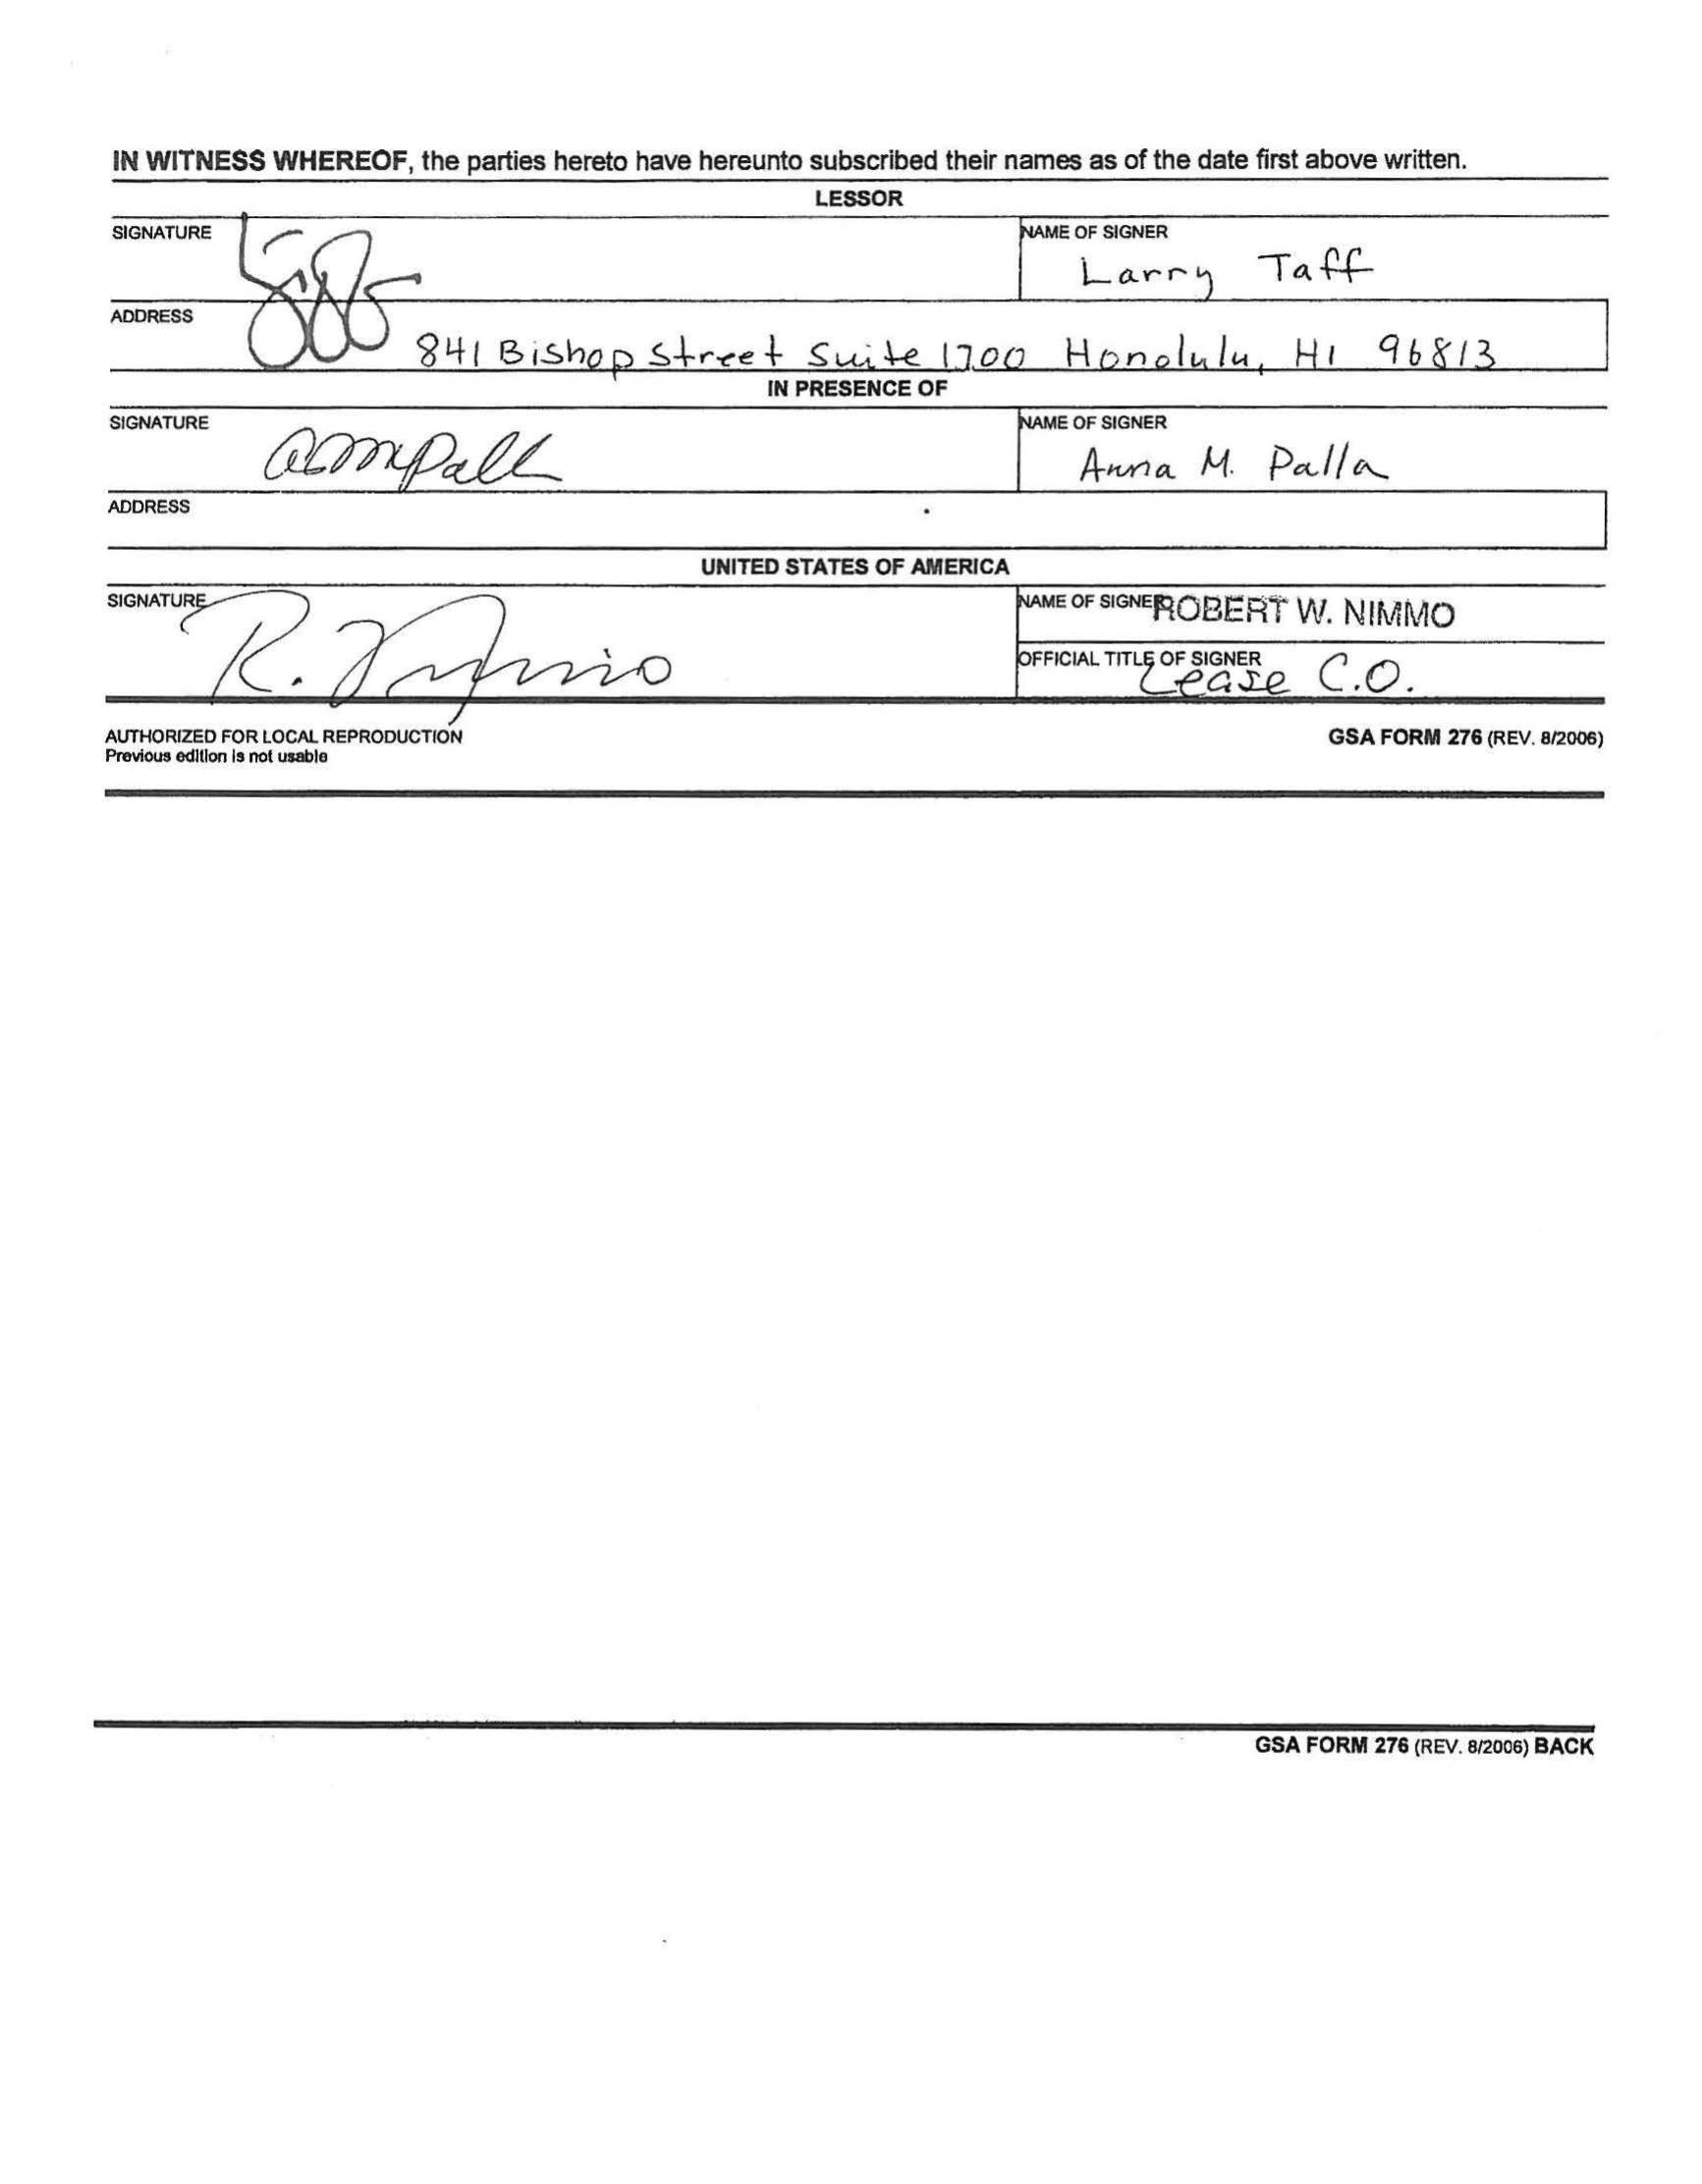 IN WITNESS WHEREOF, the parties hereto have hereunto subscribed their names as of the date first above written.
LESSOR
SIGNATURE
NAME OF SIGNER
Larry Taff
ADDRESS
841 Bishop Street Suite 1700 Honolulu, HI 96813
IN PRESENCE OF
SIGNATURE
NAME OF SIGNER
Anna M. Palla
ADDRESS
UNITED STATES OF AMERICA
SIGNATURE
R. Nimmo
NAME OF SIGNER ROBERT W. NIMMO
OFFICIAL TITLE OF SIGNER
Lease C.O.
AUTHORIZED FOR LOCAL REPRODUCTION
Previous edition is not usable
GSA FORM 276 (REV. 8/2006)
GSA FORM 276 (REV. 8/2006) BACK